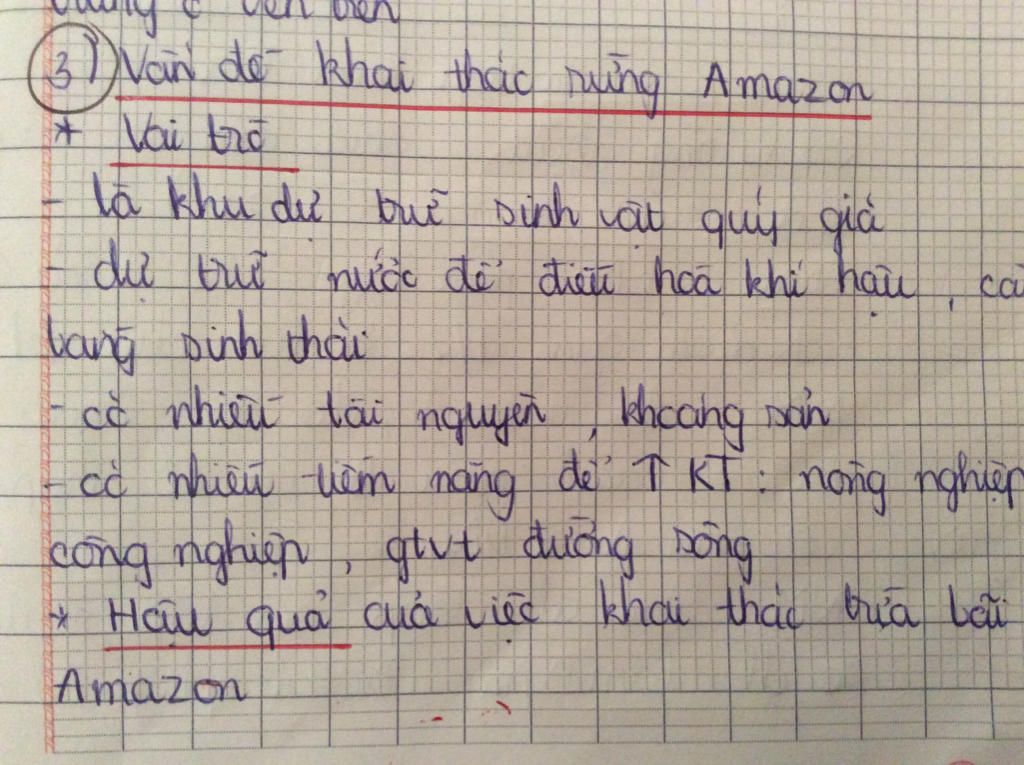 3) Vấn đề khai thác rừng Amazon
* Vai trò
- là khu dự trữ sinh vật quý giá
- dự trữ nước để điều hoà khí hậu, câ
bằng sinh thái
- có nhiều tài nguyên, khoáng sản
- có nhiều tiềm năng để ↑ KT: nông nghiệp
công nghiệp, gtvt đường sông
* Hậu quả của việc khai thác bừa bãi
Amazon